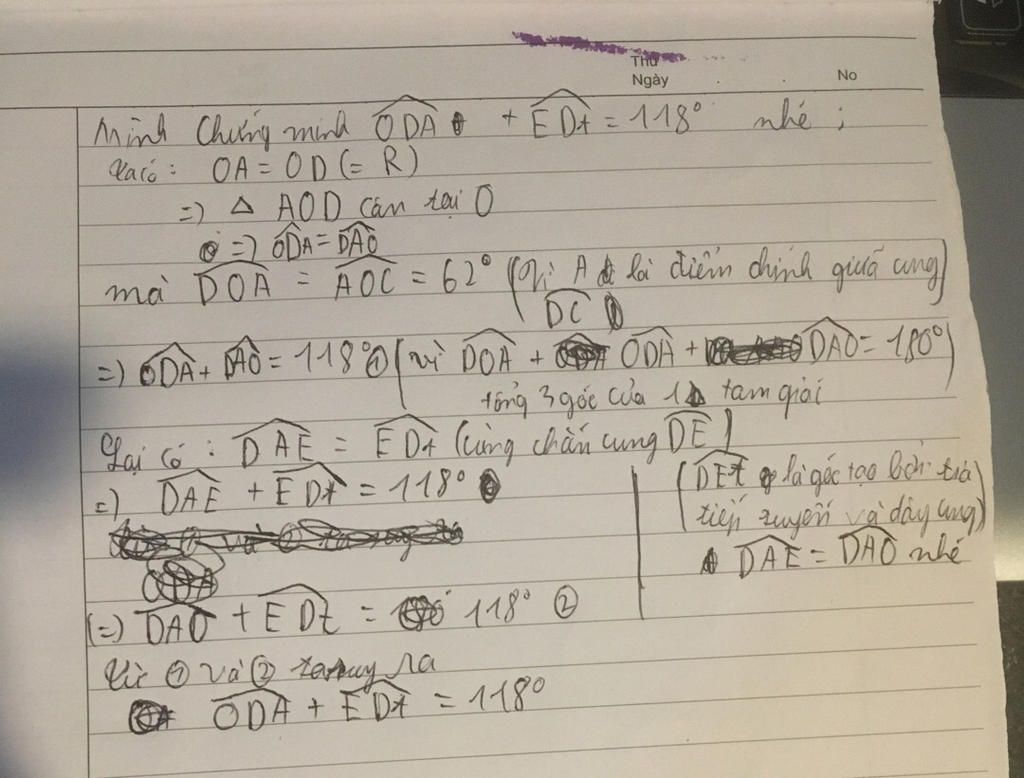 Thứ
Ngày . . No
Mình chứng minh ODA + EDt = 118° nhé ;
Ta có : OA = OD (= R)
=) Δ AOD cân tại O
=) ODA = DAO
mà DOA = AOC = 62° (Vì A là điểm chính giữa cung DC)
=) ODA + DAO = 118° ① (vì DOA + ODA + DAO = 180°)
tổng 3 góc của 1 Δ tam giái
Lại có : DAE = EDt (cùng chắn cung DE)
=) DAE + EDt = 118°
(DEt là góc tạo bởi tia
tiếp tuyến và dây cung)
DAE = DAO nhé
(=) DAO + EDt = 118° ②
Từ ① và ② ta suy ra
ODA + EDt = 118°